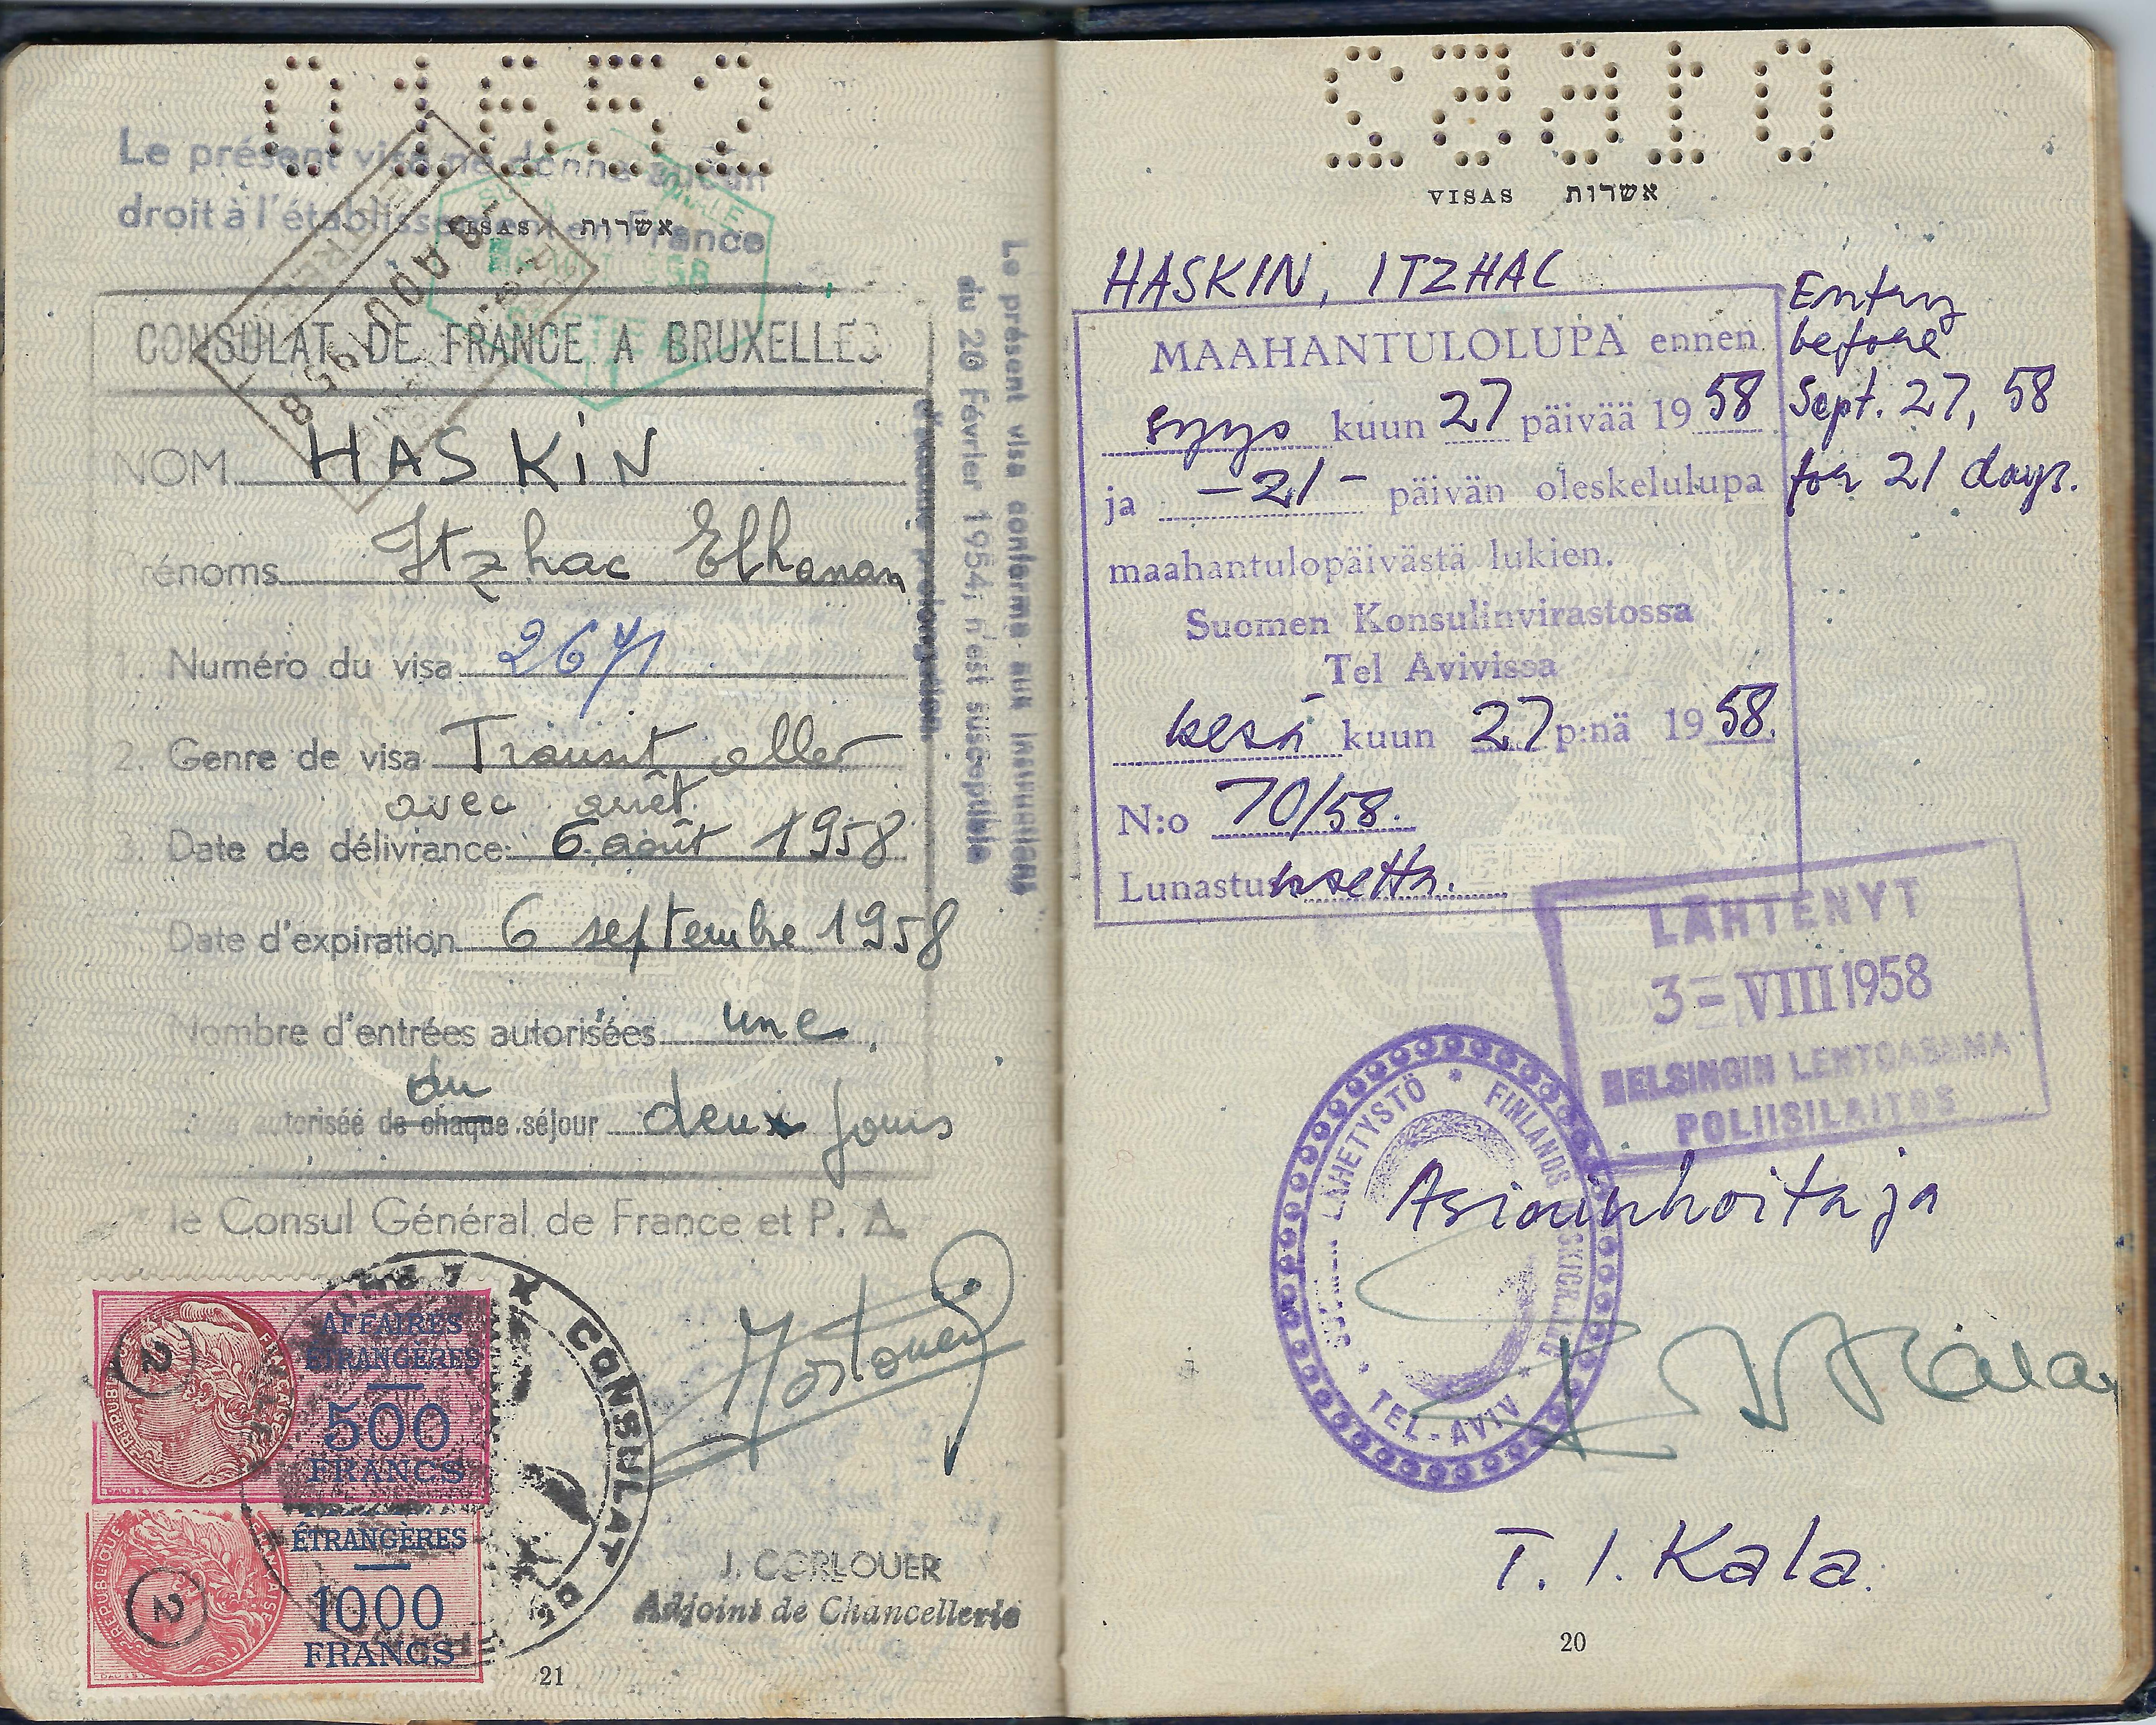 01652
Le présent visa ne donne aucun
droit à l'établissement en France
VISAS אשרות
CONSULAT DE FRANCE A BRUXELLES
NOM HASKIN
Prénoms Itzhac Elhanan
1. Numéro du visa 2671
2. Genre de visa Transit aller
avec arrêt
3. Date de délivrance: 6 août 1958
Date d'expiration 6 septembre 1958
Nombre d'entrées autorisées une
du
autorisée de chaque séjour deux jours
le Consul Général de France et P. A.
Le présent visa conforme aux instructions
du 20 Février 1954, n'est susceptible
d'aucune prolongation
AOU 1958
SORTIE
AFFAIRES
ÉTRANGÈRES
500
FRANCS
2
ÉTRANGÈRES
1000
FRANCS
2
CONSULAT DE
J. CORLOUER
Adjoint de Chancellerie
21
01652
VISAS אשרות
HASKIN, ITZHAC
MAAHANTULOLUPA ennen
syys kuun 27 päivää 1958
ja -21- päivän oleskelulupa
maahantulopäivästä lukien.
Suomen Konsulinvirastossa
Tel Avivissa
kesä kuun 27 p:nä 1958.
N:o 70/58.
Lunastuksetta.
Entry
before
Sept. 27, 58
for 21 days.
LÄHTENYT
3 = VIII 1958
HELSINGIN LENTOASEMA
POLIISILAITOS
SUOMEN LÄHETYSTÖ * FINLANDS BESKICKNING * TEL-AVIV *
Asiainhoitaja
T. I. Kala.
20